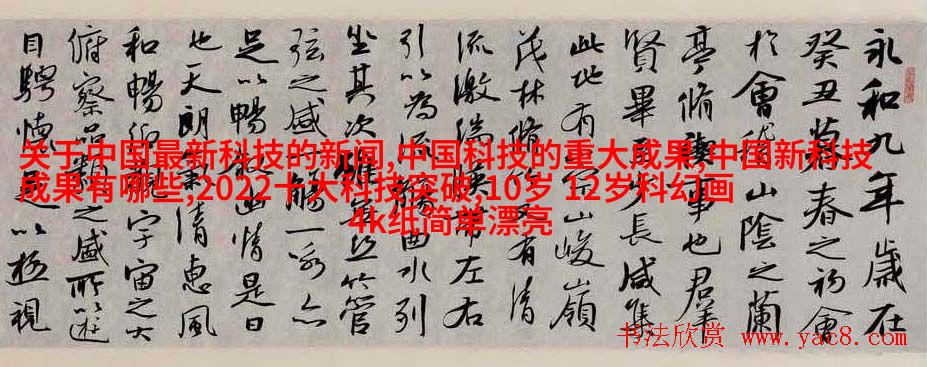 永和九年歲在
癸丑暮春之初會
於會稽山陰之蘭
亭脩禊事也群
賢畢至少長咸集
此地有崇山峻嶺
茂林脩竹又有清
流激湍暎帶左右
引以為流觴曲水列
坐其次雖無絲竹管
弦之盛一觴一詠亦
足以暢敘幽情是日
也天朗氣清惠風
和暢仰觀宇宙之大
俯察品類之盛所以遊
目騁懷足以極視
关于中国最新科技的新闻,中国科技的重大成果,中国新科技
成果有哪些,2022十大科技突破,10岁 12岁科幻画
4k纸简单漂亮
书法欣赏 www.yac8.com